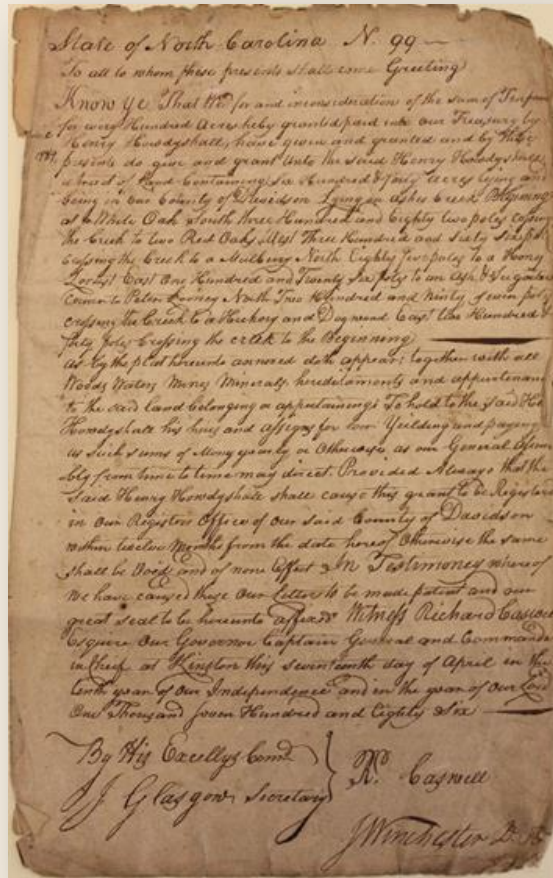 State of North-Carolina N. 99
To all to whom these presents shall come Greeting
Know ye That We for and in consideration of the sum of Ten
for every Hundred Acres hereby granted paid into our Treasury by
Henry Howdyshall, have given and granted and by these
presents do give and grant Unto the said Henry Howdyshall
a tract of Land Containing Six Hundred & forty acres lying and
being in our County of Davidson Lying on Ashes Creek Beginning
at a White Oak South three Hundred and Eighty two poles crossing
the Creek to two Red Oaks, West Three Hundred and sixty
Crossing the Creek to a Mulbery North Eighty two poles to a Honey
Locust East One Hundred and Twenty Six poles to an Ash &
Corner to Peter North Two Hundred and Ninty seven poles
crossing the Creek to a Hickory and Dogwood East two Hundred &
forty poles Crossing the creek to the Beginning
as by the plat hereunto annexed doth appear; together with all
Woods Waters Mines Minerals, hereditaments and appurtenan
to the said land belonging or appertaining: To hold to the said
Howdyshall his heirs and assigns for Yeilding and paying
us such sums of Mony yearly or Otherwise, as our General Assem
bly from time to time may direct. Provided Always that the
said Henry Howdyshall shall cause this grant to be Register
in our Registers Office of our said County of Davidson
within twelve Months from the date hereof Otherwise the same
shall be Void and of none Effect In Testimoney whereof
We have caused these Our Letters to be made patent and our
great seal to be hereunto affixed. Witness Richard Caswell
Esquire Our Governor Captain General and Commande
in Chief at Kinston this seventeenth day of April in the
tenth year of Our Independence and in the year of our Lord
One Thousand seven Hundred and Eighty Six
By His Excellys Comd.
J Glasgow Secretary
Rd. Caswell
J Winchester